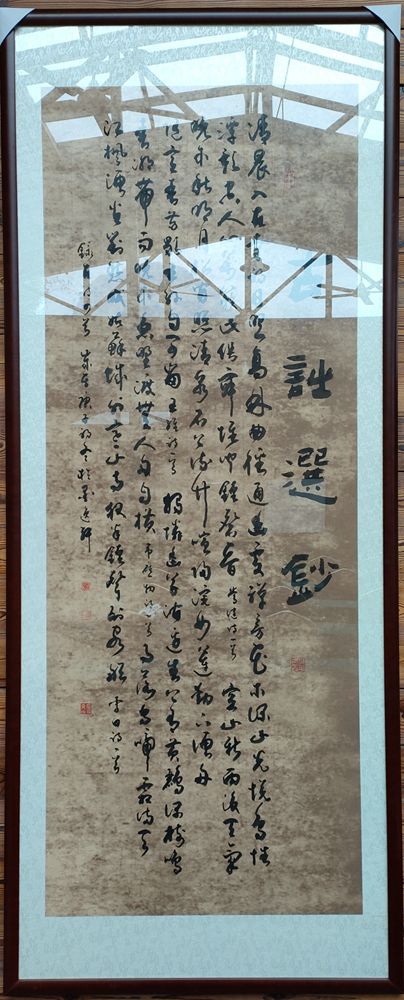 詩選鈔
清晨入古寺初日照高林曲徑通幽處禪房花木深山光悅鳥性
潭影空人心萬籟此俱寂惟聞鐘磬音常建詩一首空山新雨後天氣
晚來秋明月松間照清泉石上流竹喧歸浣女蓮動下漁舟
隨意春芳歇王孫自可留王維詩一首獨憐幽草澗邊生上有黃鸝深樹鳴
春潮帶雨晚來急野渡無人舟自橫韋應物詩一首月落烏啼霜滿天
江楓漁火對愁眠姑蘇城外寒山寺夜半鐘聲到客船詩一首
歲在庚子初冬於墨